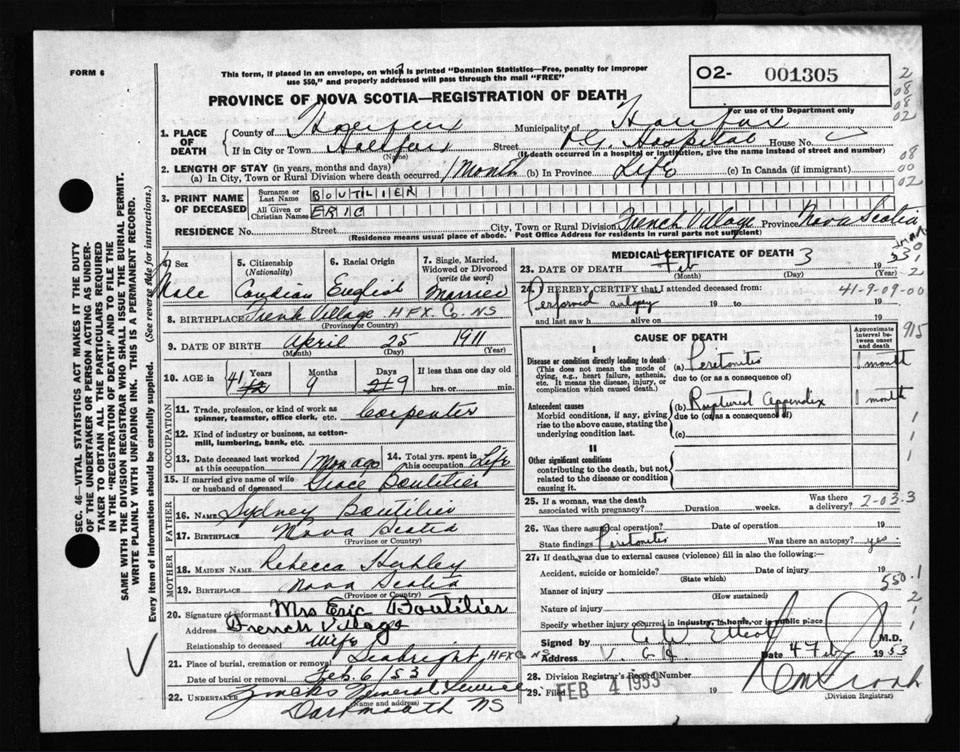 FORM 6
This form, if placed in an envelope, on which is printed "Dominion Statistics—Free, penalty for improper
use $50," and properly addressed will pass through the mail "FREE"
O2- 001305
For use of the Department only
2
08
08
02
PROVINCE OF NOVA SCOTIA—REGISTRATION OF DEATH
1. PLACE OF DEATH
County of Halifax Municipality of Halifax
If in City or Town Halifax Street V.G. Hospital House No.
(Name) (If death occurred in a hospital or institution, give the name instead of street and number)
2. LENGTH OF STAY (in years, months and days)
(a) In City, Town or Rural Division where death occurred 1 Month (b) In Province Life (c) In Canada (if immigrant)
08
00
02
3. PRINT NAME OF DECEASED
Surname or Last Name BOUTLIER
All Given or Christian Names ERIC
RESIDENCE No. Street City, Town or Rural Division French Village Province Nova Scotia
(Residence means usual place of abode. Post Office Address for residents in rural parts not sufficient)
4. Sex Male
5. Citizenship (Nationality) Candian
6. Racial Origin English
7. Single, Married, Widowed or Divorced (write the word) Married
8. BIRTHPLACE French Village HFX. Co. NS
(Province or Country)
9. DATE OF BIRTH April 25 1911
(Month) (Day) (Year)
10. AGE in 41 Years 9 Months 9 Days If less than one day old hrs. or min.
OCCUPATION
11. Trade, profession, or kind of work as spinner, teamster, office clerk, etc. Carpenter
12. Kind of industry or business, as cotton-mill, lumbering, bank, etc.
13. Date deceased last worked at this occupation 1 Mon ago
14. Total yrs. spent in this occupation Life
15. If married give name of wife or husband of deceased Grace Boutilier
FATHER
16. NAME Sydney Boutilier
17. BIRTHPLACE Nova Scotia
(Province or Country)
MOTHER
18. MAIDEN NAME Rebecca
19. BIRTHPLACE Nova Scotia
(Province or Country)
20. Signature of informant Mrs Eric Boutilier
Address French Village
Relationship to deceased Wife
21. Place of burial, cremation or removal Seabright, HFX Co NS
Date of burial or removal Feb. 6/53
22. UNDERTAKER Funeral Service
(Name and address)
Dartmouth NS
MEDICAL CERTIFICATE OF DEATH
23. DATE OF DEATH Feb 3 19
(Month) (Day) (Year)
24. I HEREBY CERTIFY that I attended deceased from:
41-9-09-00
Performed autopsy 19 to 19
and last saw h alive on 19
CAUSE OF DEATH
Approximate interval between onset and death
915
I
Disease or condition directly leading to death
(This does not mean the mode of dying, e.g., heart failure, asthenia, etc. It means the disease, injury, or complication which caused death.)
(a) Peritonitis 1 month
due to (or as a consequence of)
Antecedent causes
Morbid conditions, if any, giving rise to the above cause, stating the underlying condition last.
(b) Ruptured Appendix 1 month
due to (or as a consequence of)
(c)
II
Other significant conditions contributing to the death, but not related to the disease or condition causing it.
25. If a woman, was the death associated with pregnancy? Duration weeks. Was there a delivery?
7-03.3
26. Was there a surgical operation? Date of operation 19
State findings Peritonitis Was there an autopsy? yes.
27. If death was due to external causes (violence) fill in also the following:—
Accident, suicide or homicide? Date of injury 19
(State which)
Manner of injury
(How sustained)
550.1
Nature of injury
Specify whether injury occurred in industry, in home, or in public place
Signed by M.D.
Address V. G. Date 4 Feb 1953
28. Division Registrar's Record Number
29. Filed FEB 4 1953 19
(Division Registrar)
SEC. 46—VITAL STATISTICS ACT MAKES IT THE DUTY
OF THE UNDERTAKER OR PERSON ACTING AS UNDER-
TAKER TO OBTAIN ALL THE PARTICULARS REQUIRED
IN THE "REGISTRATION OF DEATH" AND TO FILE THE
SAME WITH THE DIVISION REGISTRAR WHO SHALL ISSUE THE BURIAL PERMIT.
WRITE PLAINLY WITH UNFADING INK. THIS IS A PERMANENT RECORD.
Every item of information should be carefully supplied. (See reverse side for instructions.)